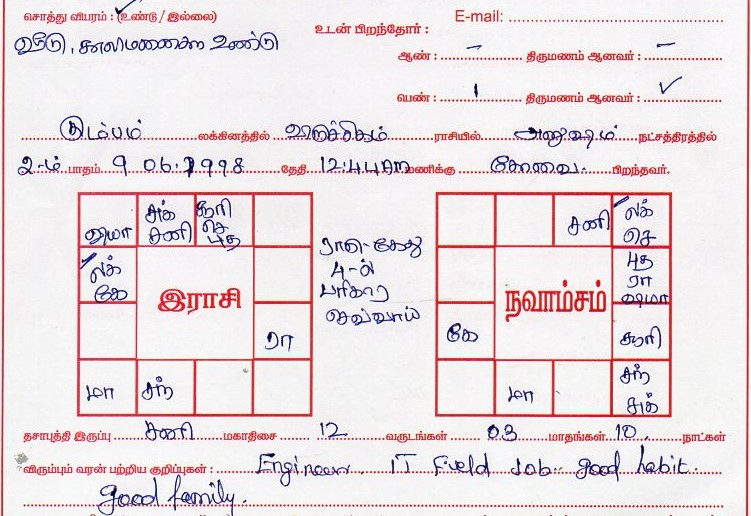 சொத்து விபரம் : (உண்டு / இல்லை)
E-mail:
உடன் பிறந்தோர் :
வீடு, காலிமனைகள் உண்டு
ஆண் : – திருமணம் ஆனவர் : –
பெண் : 1 திருமணம் ஆனவர் : ✓
கும்பம் லக்கினத்தில் விருச்சிகம் ராசியில் அனுஷம் நட்சத்திரத்தில்
2-ம் பாதம் 9 06.1998 தேதி 12:44AM மணிக்கு கோவை பிறந்தவர்.
சுக் சூரி
குரு சனி செ
புத
லக்
கே
இராசி
ரா
மா சந்
ராகு-கேது
4-ல்
பரிகார
செவ்வாய்
சனி லக்
செ
புத
ரா
குரு
நவாம்சம்
கே சூரி
மா சந்
சுக்
தசாபுத்தி இருப்பு சனி மகாதிசை 12 வருடங்கள் 03 மாதங்கள் 10 நாட்கள்
விரும்பும் வரன் பற்றிய குறிப்புகள் : Engineer. IT Field Job. good habit.
good family.